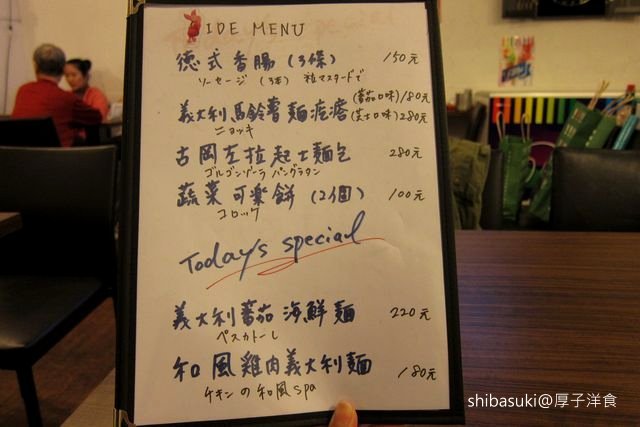 SIDE MENU
德式香腸 (3條) 150元
ソーセージ (3本) 粒マスタードで
義大利馬鈴薯麵疙瘩 (蕃茄口味) 180元
(芝士口味) 280元
ニョッキ
古岡左拉起士麵包 280元
ゴルゴンゾーラ パングラタン
蔬菜可樂餅 (2個) 100元
コロッケ
Today's special
義大利蕃茄海鮮麵 220元
ペスカトーレ
和風雞肉義大利麵 180元
チキンの和風spa
shibasuki@厚子洋食